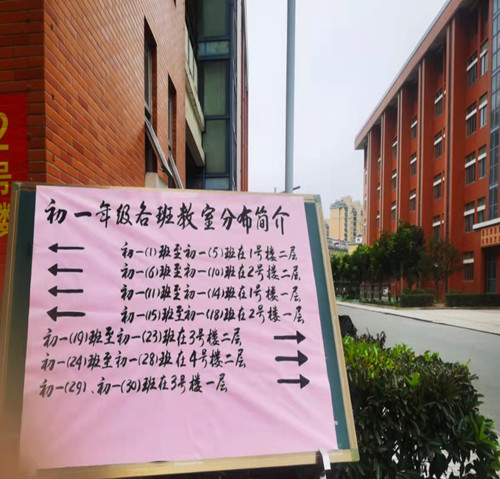 2号楼
初一年级各班教室分布简介
← 初一(1)班至初一(5)班在1号楼二层
← 初一(6)班至初一(10)班在2号楼二层
← 初一(11)班至初一(14)班在1号楼一层
← 初一(15)班至初一(18)班在2号楼一层
初一(19)班至初一(23)班在3号楼二层 →
初一(24)班至初一(28)班在4号楼二层 →
初一(29)、初一(30)班在3号楼一层 →